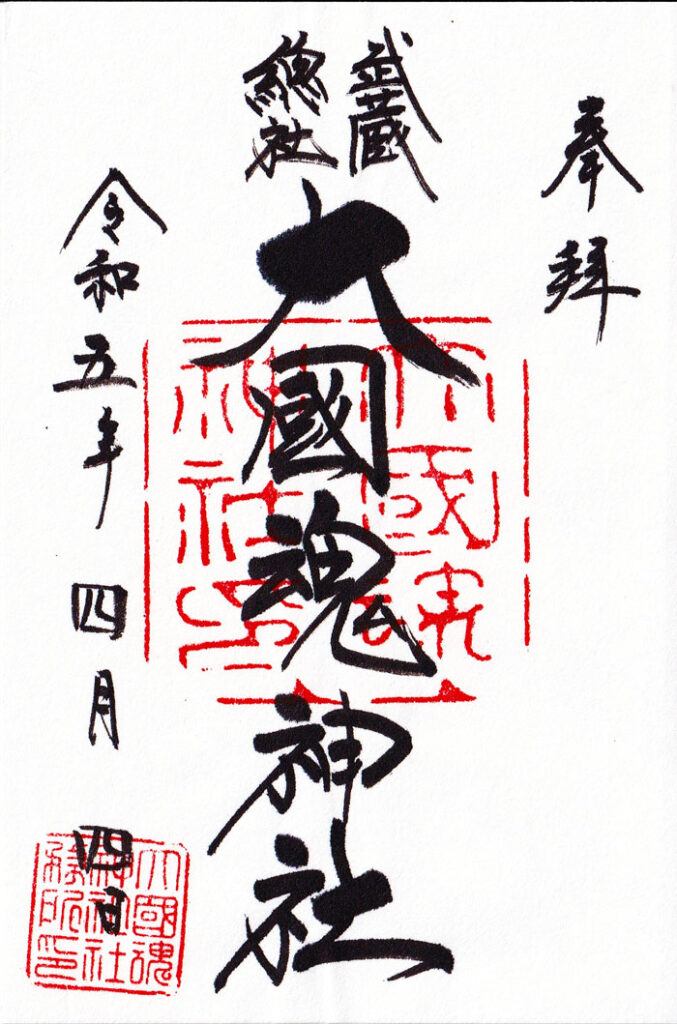 奉拝
武蔵
總社
大國魂神社
令和五年 四月 四日
大國魂
神社印
大國魂
神社社
務所印